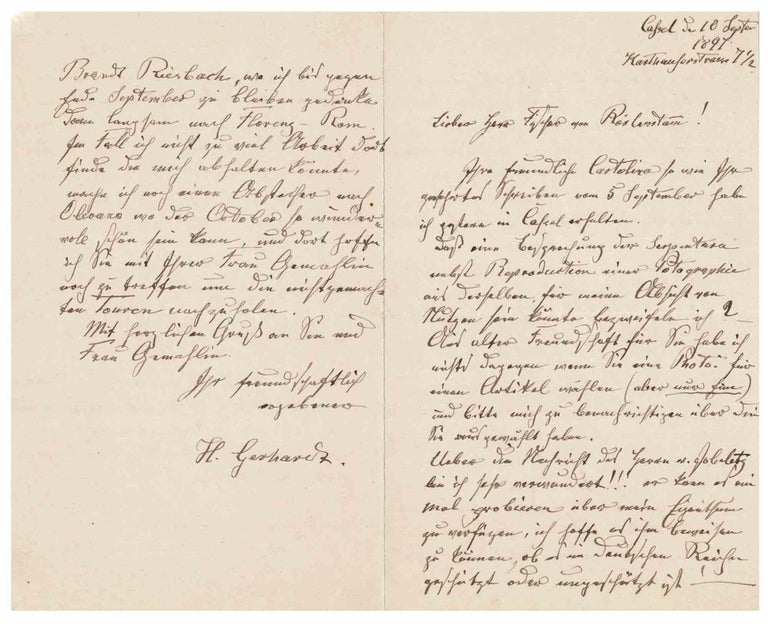 Cassel de 10 Septe
1897
Karthäuserstrasse 7½
Lieber Herr Fischer von Röslerstamm!
Ihre freundliche Cartolina so wie Ihr
geehrtes Schreiben vom 5 September habe
ich gestern in Cassel erhalten.
Daß eine Besprechung der Serpentara
nebst Reproduction einer Photographie
aus derselben, für meine Absicht von
Nutzen sein könnte bezweifele ich ?
Aus alter Freundschaft für Sie habe ich
nichts dagegen wenn Sie eine Photo: für
einen Artikel wählen (aber nur eine)
und bitte mich zu benachrichtigen über die
Sie ausgewählt haben.
Ueber die Nachricht des Herrn v.
bin ich sehr verwundert!!! er kann es ein
mal probieren über mein Eigenthum
zu verfügen, ich hoffe es ihm beweisen
zu können, ob es im deutschen Reiche
geschützt oder ungeschützt ist!
Brandt Riesbach, wo ich bis gegen
Ende September zu bleiben gedenke
dann langsam nach Florenz - Rom.
Im Fall ich nicht zu viel Arbeit dort
finde die mich abhalten könnte,
mache ich noch einen Abstecher nach
Olevano wo der October so wunder-
voll schön sein kann, und dort hoffe
ich Sie mit Ihrer Frau Gemahlin
noch zu treffen um die nichtgemach-
ten Touren nachzuholen.
Mit herzlichen Gruß an Sie und
Frau Gemahlin.
Ihr freundschaftlich
ergebener
H. Gerhardt.